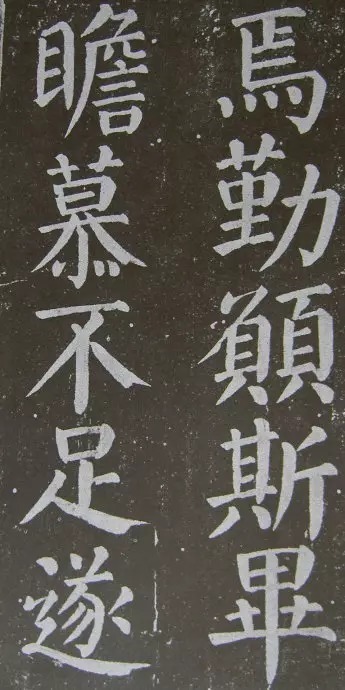 焉勤願斯畢
瞻慕不足遂